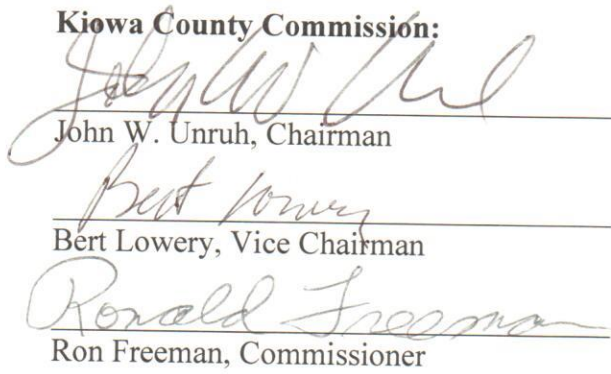 Kiowa County Commission:
John W Unruh
John W. Unruh, Chairman
Bert Lowery
Bert Lowery, Vice Chairman
Ronald Freeman
Ron Freeman, Commissioner